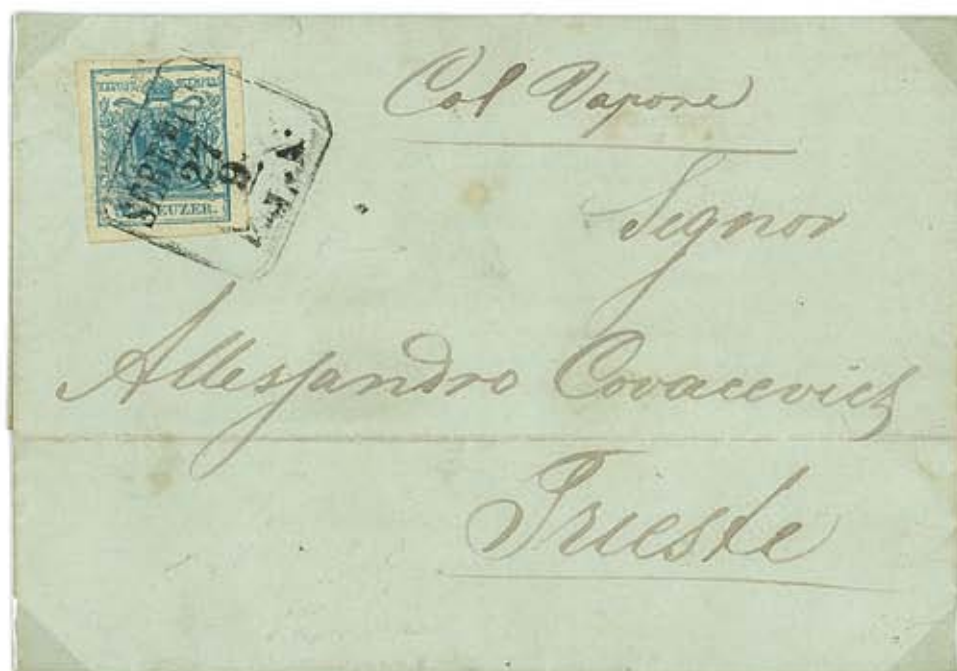 KREUZER.
27
9
L.A.
Col Vapore
Segnor
Allessandro Covacevich
Trieste